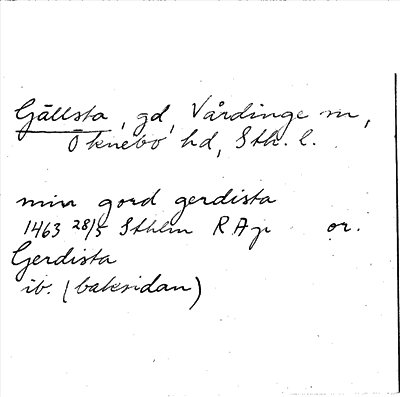 Gjällsta, gd, Vårdinge sn,
Öknebo hd, Sth. l.
min gord gerdista
1463 28/5 Sthlm RAp or.
Gerdista
ib. (baksidan)